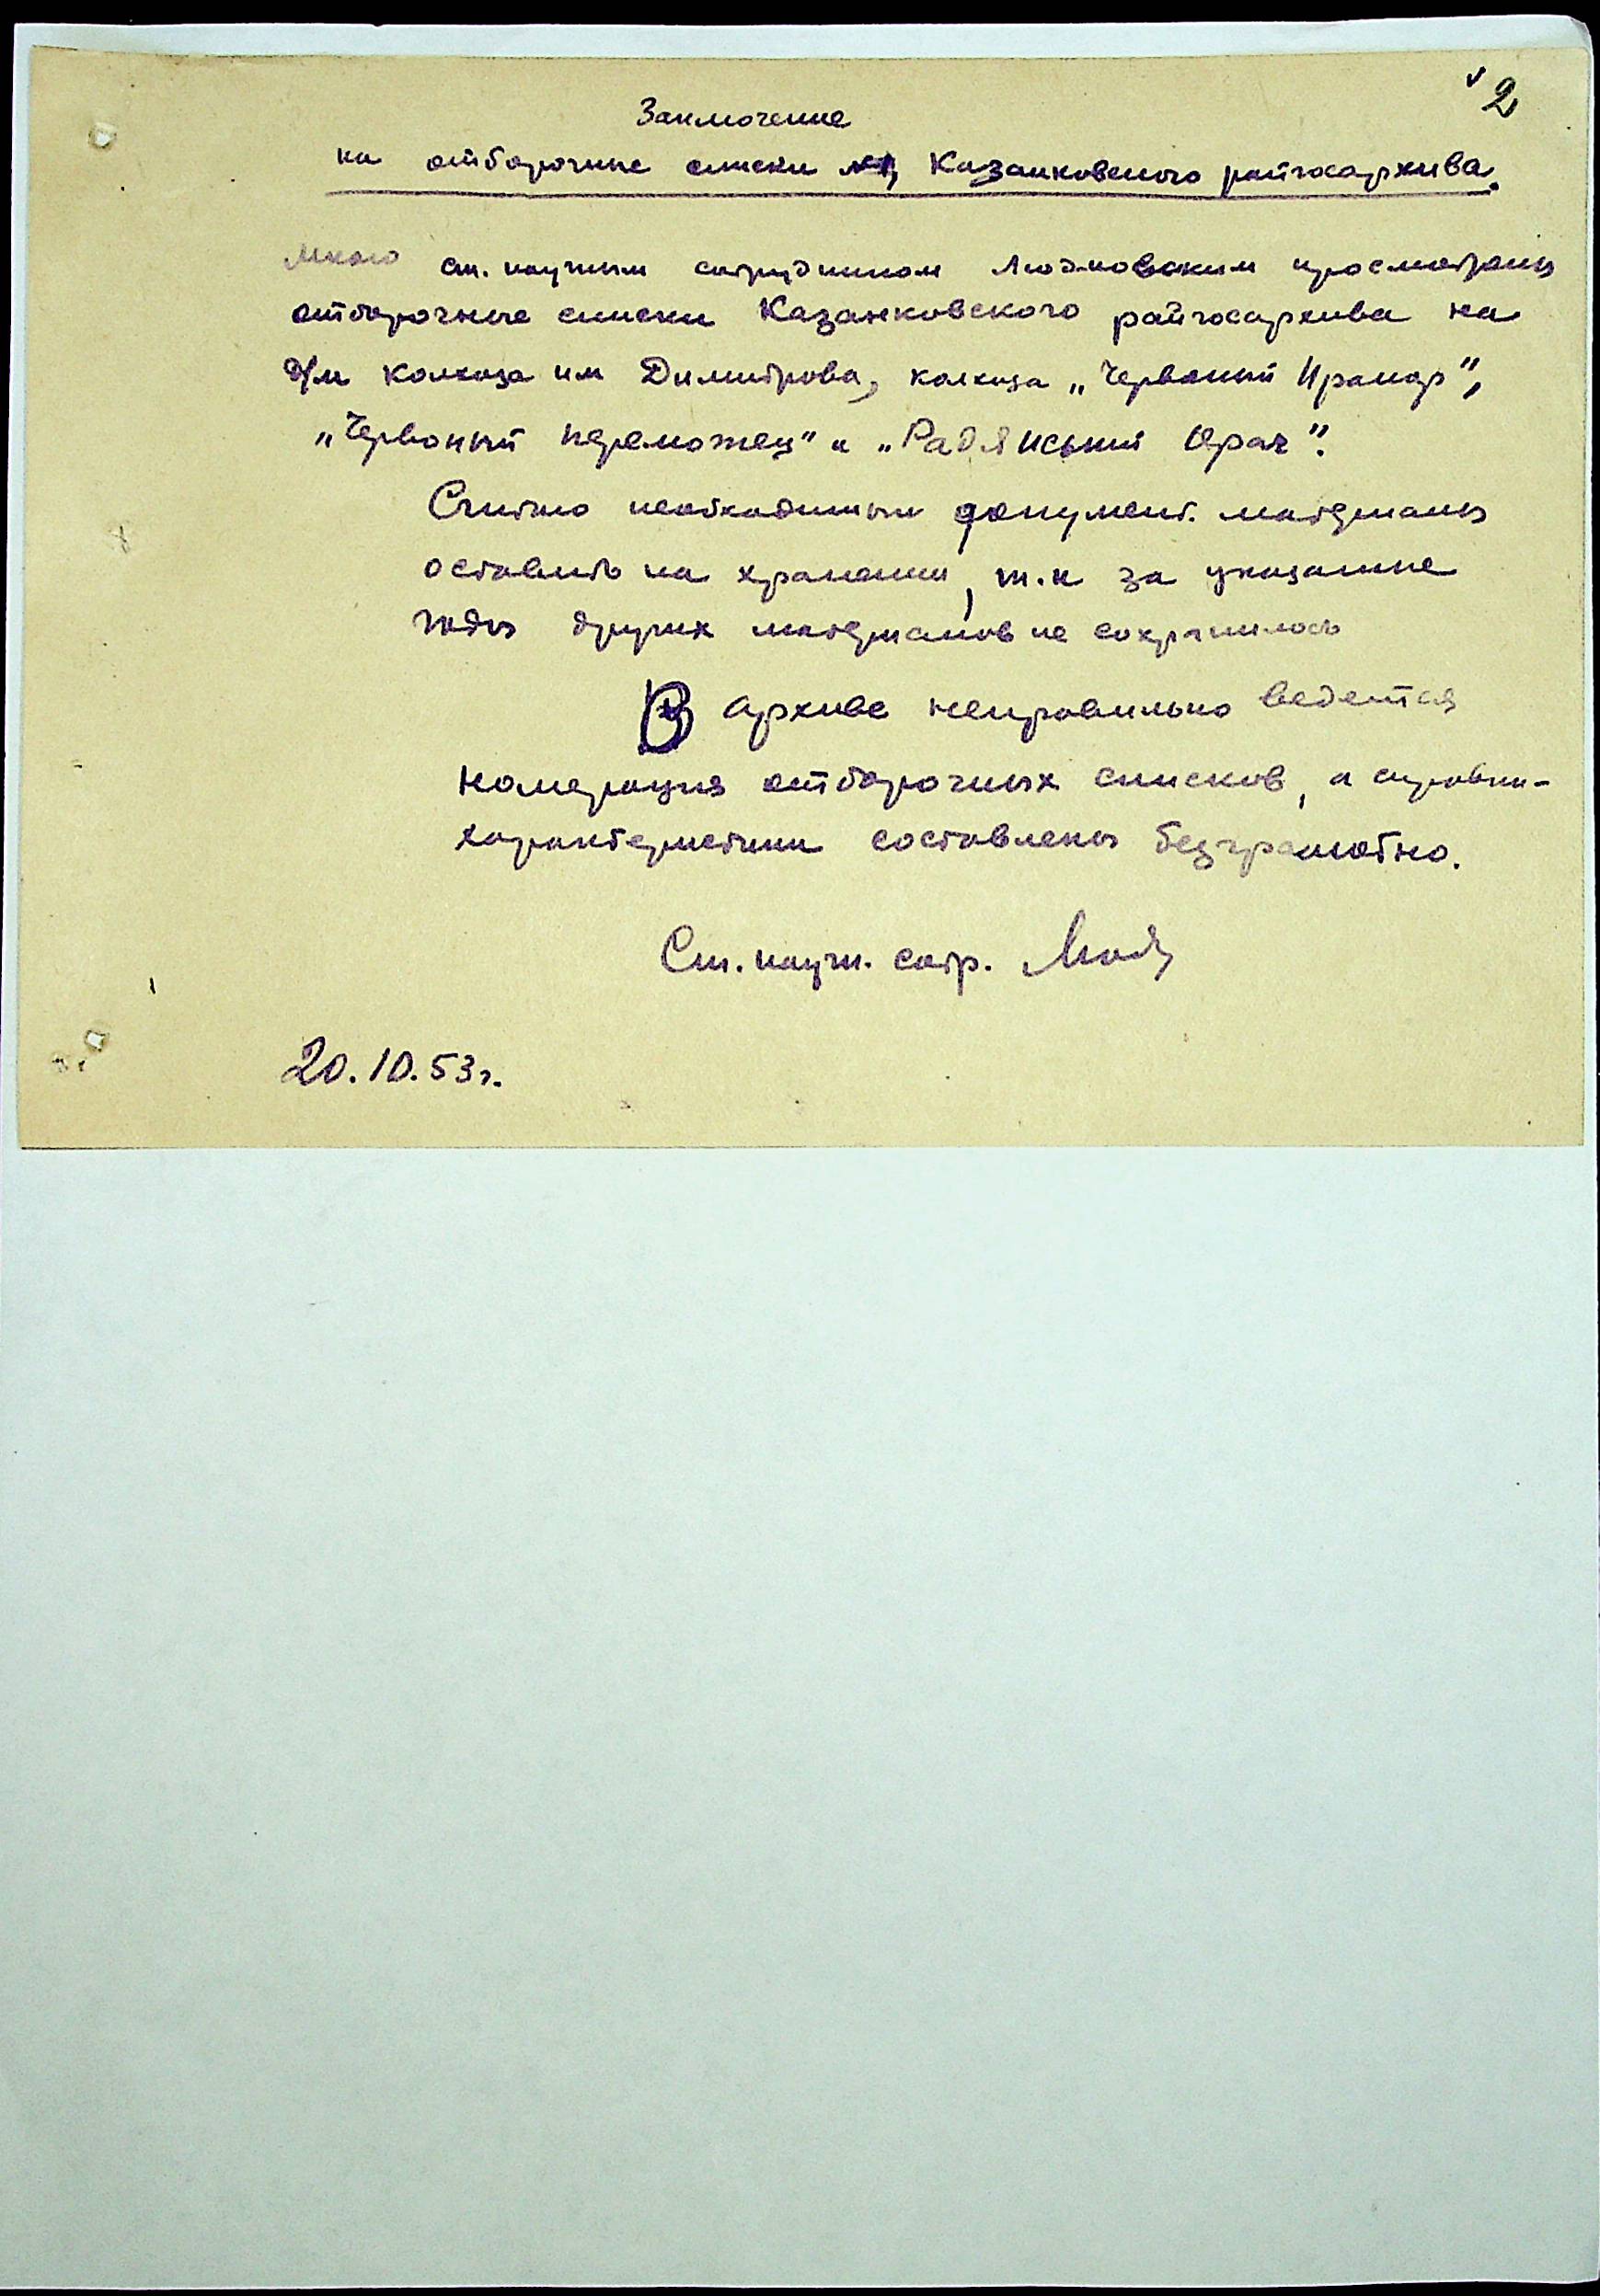 2
Заключение
на отборочные списки Казанковского райгосархива.
Мною ст. научным сотрудником Людмовским просмотрены
отборочные списки Казанковского райгосархива на
д/м колхоза им Димитрова, колхоза „Червоний Прапор",
„Червоний переможец" и „Радянський Орач".
Считаю необходимым документ. материалы
оставить на хранении, т.к за указанные
годы других материалов не сохранилось
В архиве неправильно ведется
номерация отборочных списков, а справки-
характеристики составлены безграмотно.
Ст. научн. сотр.
20.10.53г.